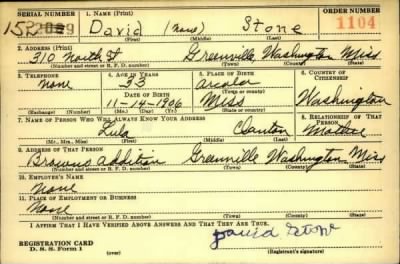 SERIAL NUMBER 1. NAME (Print) ORDER NUMBER
David (None) Stone 1104
(First) (Middle) (Last)
2. ADDRESS (Print)
310 North St Greenville Washington Miss
(Number and street or R. F. D. number) (Town) (County) (State)
3. TELEPHONE 4. AGE IN YEARS 5. PLACE OF BIRTH 6. COUNTRY OF CITIZENSHIP
None 33 Arcola
DATE OF BIRTH (Town or county)
11-14-1906 Miss Washington
(Mo.) (Day) (Yr.) (State or country)
7. NAME OF PERSON WHO WILL ALWAYS KNOW YOUR ADDRESS 8. RELATIONSHIP OF THAT PERSON
Lula Clanton Mother
(Mr., Mrs., Miss) (First) (Middle) (Last)
9. ADDRESS OF THAT PERSON
Browns addition Greenville Washington Miss
(Number and street or R. F. D. number) (Town) (County) (State)
10. EMPLOYER'S NAME
None
11. PLACE OF EMPLOYMENT OR BUSINESS
None
(Number and street or R. F. D. number) (Town) (County) (State)
I AFFIRM THAT I HAVE VERIFIED ABOVE ANSWERS AND THAT THEY ARE TRUE.
REGISTRATION CARD David Stone
D. S. S. Form 1 (over) (Registrant's signature)